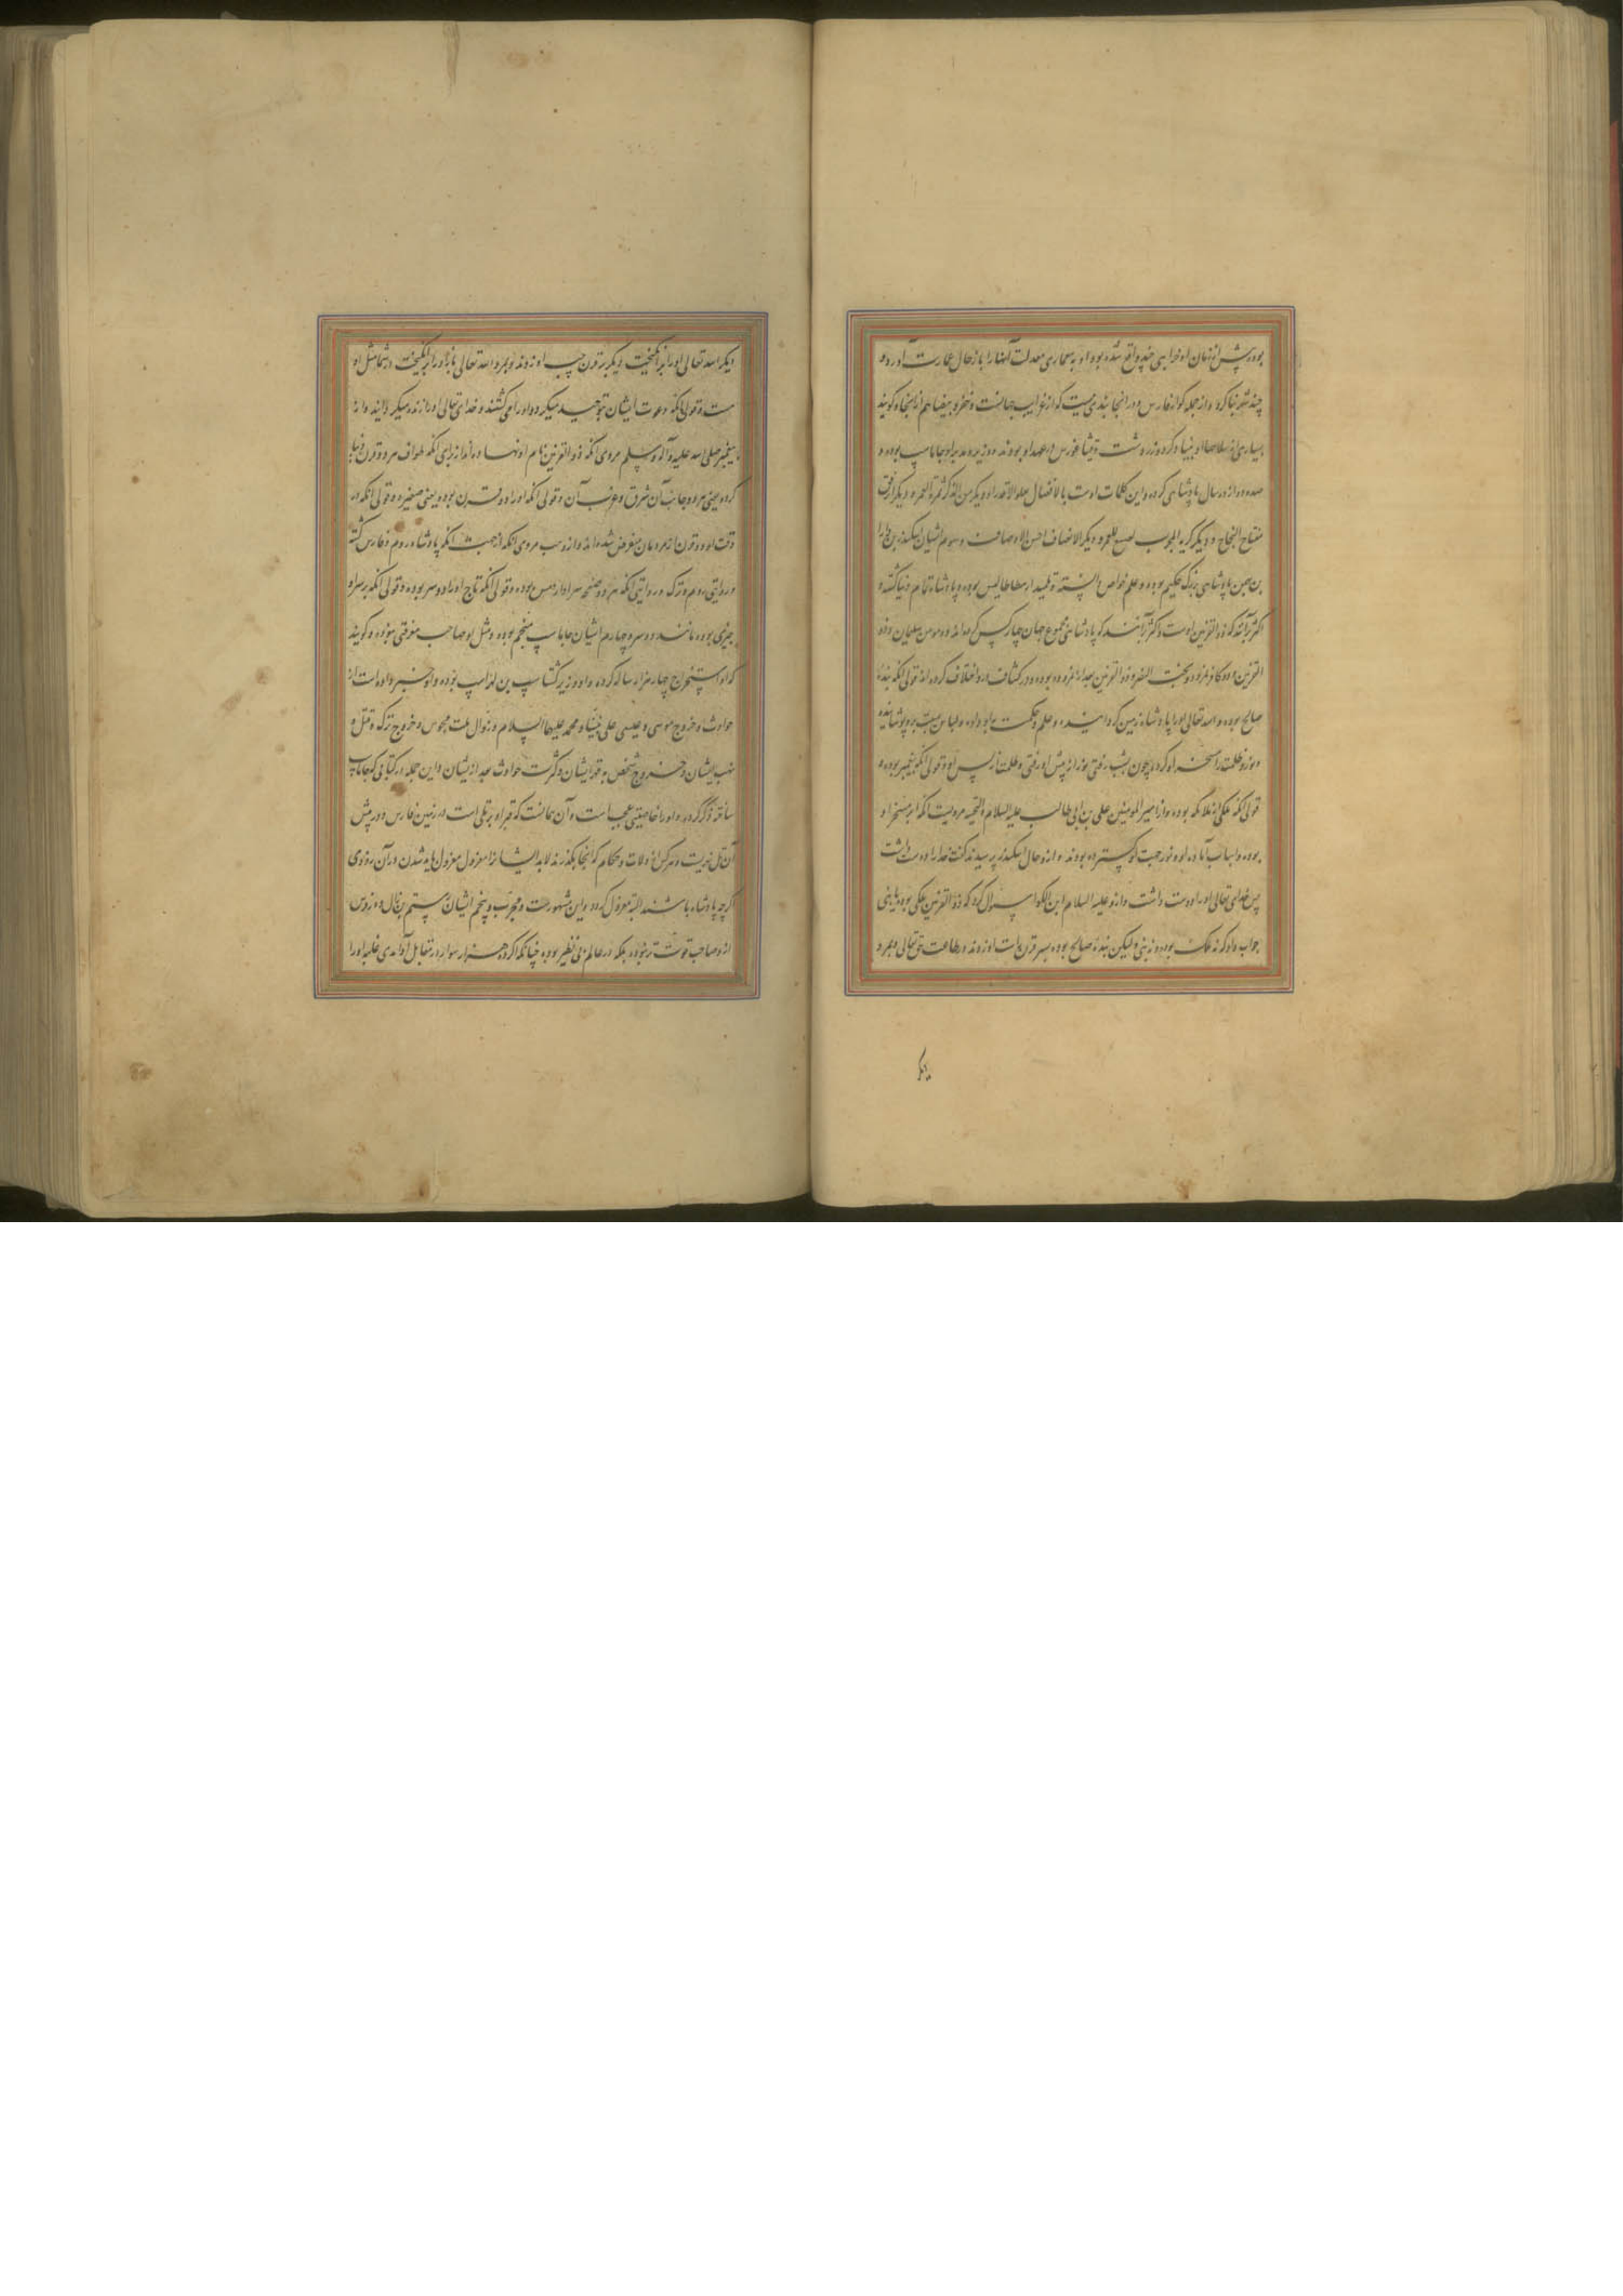 بوده پیش از زمان او خرابی چند واقع شده بود او به معماری معدلت آنها را باز حال عمارت آورد و
چند شهر بنا کرد و از جمله کوار فارس و در آنجا بندی هست که از غرایب جهانست و نخر و بیضا هم از اینجا و کویند
بسیاری از سلاحها او بنیاد کرد و زردشت و فیثاغورس در عهد او بودند و وزیر و مدبر او جاماسب بوده و
صد و دوازده سال پادشاهی کرده و این کلمات اوست بالافضال یعلو الاقدار و دیکر من الذکر ثمرة العمر و دیکر الرفق
مفتاح النجاح و دیکر کریه الحرب اصبح للعمر و دیکر الانصاف احسن الاوصاف و سوم ایشان اسکندر بن دارا
بن بهمن پادشاهی بزرک حکیم بوده و علم خواص دانسته و تلمیذ ارسطاطالیس بوده و پادشاه تمام دنیا کشته و
اکثر برآنند که ذوالقرنین اوست و اکثر برآنند که پادشاهی مجموع جهان چهار کس کرده اند دو مومن سلیمان و ذو
القرنین و دو کافر نمرود و بخت النصر و ذوالقرنین بعد از نمرود بوده و در کشاف در او اختلاف کرده اند قولی آنکه بنده
صالح بوده و الله تعالی او را پادشاه زمین کردانیده و علم و حکمت به او داده و لباس هیبت برو پوشانیده
و نور و ظلمت را مسخر او کرده چون بشب رفتی نور از پیش او رفتی و ظلمت از پس او و قولی آنکه پیغمبر بوده و
قولی آنکه ملکی از ملائکه بوده و از امیر المومنین علی بن ابی طالب علیه السلام و التحیه مرویست که ابر مسخر او
بوده و اسباب آماده او و نور جهت او کسترده بودند و از و حال اسکندر پرسیدند گفت خدا را دوست داشت
پس خدای تعالی او را دوست داشت و از و علیه السلام ابن الکوا سئوال کرد که ذوالقرنین ملکی بوده یا نبی
جواب داد که نه ملک بوده و نه نبی ولیکن بنده صالح بوده بر قرن راست او زدند در طاعت حق تعالی و بمرد
دیکر
دیکر الله تعالی او را برانکیخت دیکر بر قرن چپ او زدند و بمرد الله تعالی باز او را برانکیخت در شما مثل او
هست و قولی آنکه دعوت ایشان بتوحید میکرد و او را می کشتند و خدای تعالی او را زنده میکردانید و از
پیغمبر صلی الله علیه و آله و سلم مروی آنکه ذوالقرنین نام او نهاده اند از برای آنکه طواف هر دو قرن دنیا
کرده یعنی هر دو جانب آن شرق و غرب آن و قولی آنکه او را دو قرن بوده یعنی ضفیره و قولی آنکه در
وقت او دو قرن از مردمان منقرض شده اند و از وهب مروی آنکه از جهت آنکه پادشاه روم و فارس کشته
و روایتی روم و ترک و روایتی آنکه هر دو صفحه سر او از مس بوده و قولی آنکه تاج او را دو سر بوده و قولی آنکه بر سر او
چیزی بوده مانند دو سرو چهارم ایشان جاماسب منجم بوده و مثل او صاحب معرفتی نبوده و کویند
که او استخراج چهار هزار ساله کرده و او وزیر کشتاسب بن لهراسب بوده و او خبر داده است از
حوادث و خروج موسی و عیسی علی نبینا و محمد علیهما السلام و زوال ملت مجوس و خروج ترک و قتل و
نهب ایشان و خروج شخصی به قهر ایشان و کثرت حوادث بعد از ایشان و این جمله در کتابی که جاماسب
ساخته ذکر کرده و او را خاصیتی عجب است و آن چنانست که قبر او بر تلی است در زمین فارس و در پیش
آن تل نهریست و هر کس از ولات و حکام که آنجا بگذرند لابد ایشانرا معزول معزول باید شدن در آن روزی
اکرچه پادشاه باشند البته معزول کردد و این مشهورست و مجرب و پنجم ایشان رستم بن زال و هرکز در
از و صاحب قوت تر نبوده بلکه در عالم بی نظیر بوده چنانکه اکر ده هزار سوار در مقابل آمدی غلبه او را